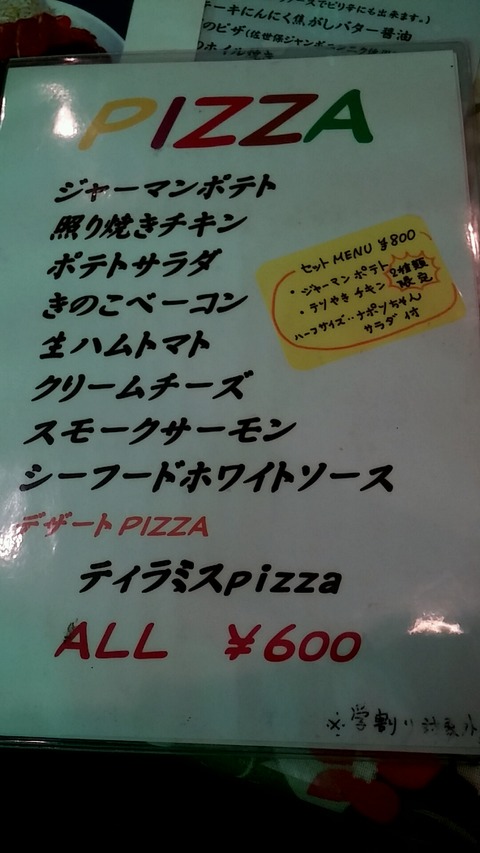 ソースでピリ辛にも出来ます。)
ーキにんにく焦がしバター醤油
のピザ(佐世保ジャンボニンニク使用
のホイル焼き
PIZZA
ジャーマンポテト
照り焼きチキン
ポテトサラダ
きのこベーコン
生ハムトマト
クリームチーズ
スモークサーモン
シーフードホワイトソース
デザートPIZZA
ティラミスpizza
ALL ¥600
セットMENU ¥800
・ジャーマンポテト
・テリやきチキン
2種類
限定
ハーフサイズ・・ナポリちゃん
サラダ付
※学割り対象外